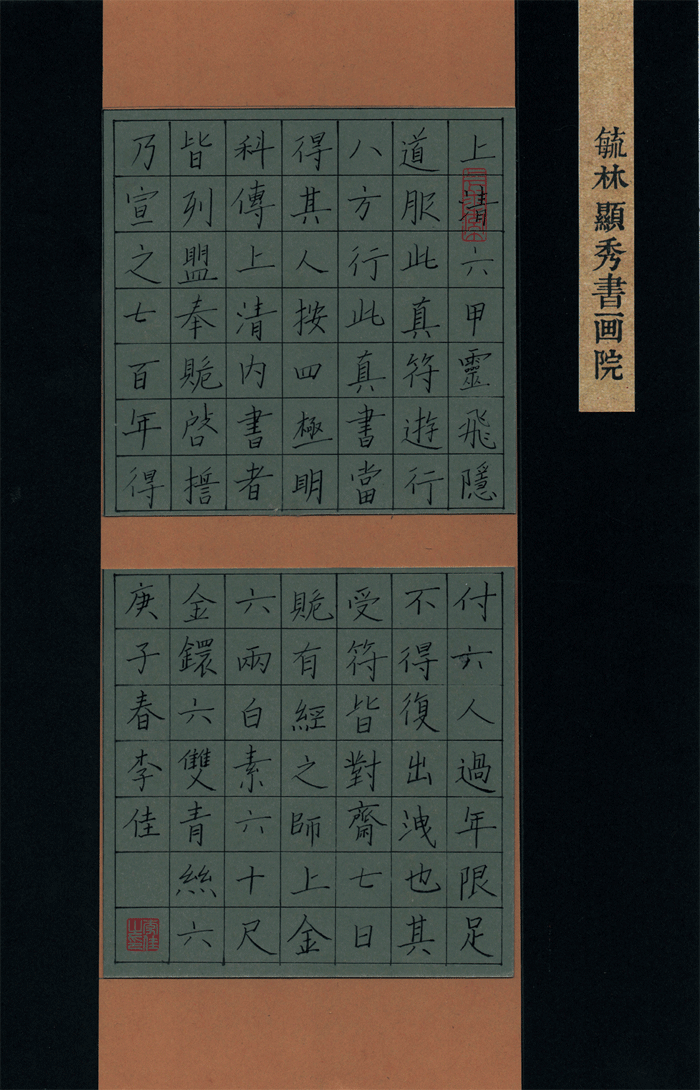 毓林顯秀書画院
上清六甲靈飛隱
道服此真符遊行
八方行此真書當
得其人按四極明
科傳上清内書者
皆列盟奉貺啓誓
乃宣之七百年得
付六人過年限足
不得復出洩也其
受符皆對齋七日
貺有經之師上金
六兩白素六十尺
金鐶六雙青絲六
庚子春李佳